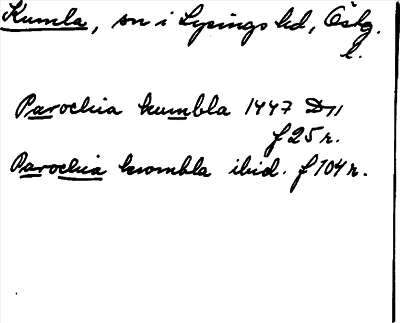 Kumla, sn i Lysings hd, Östg.
l.
Parochia kumbla 1447 D11
f 25 r.
Parochia krombla ibid. f 104 r.